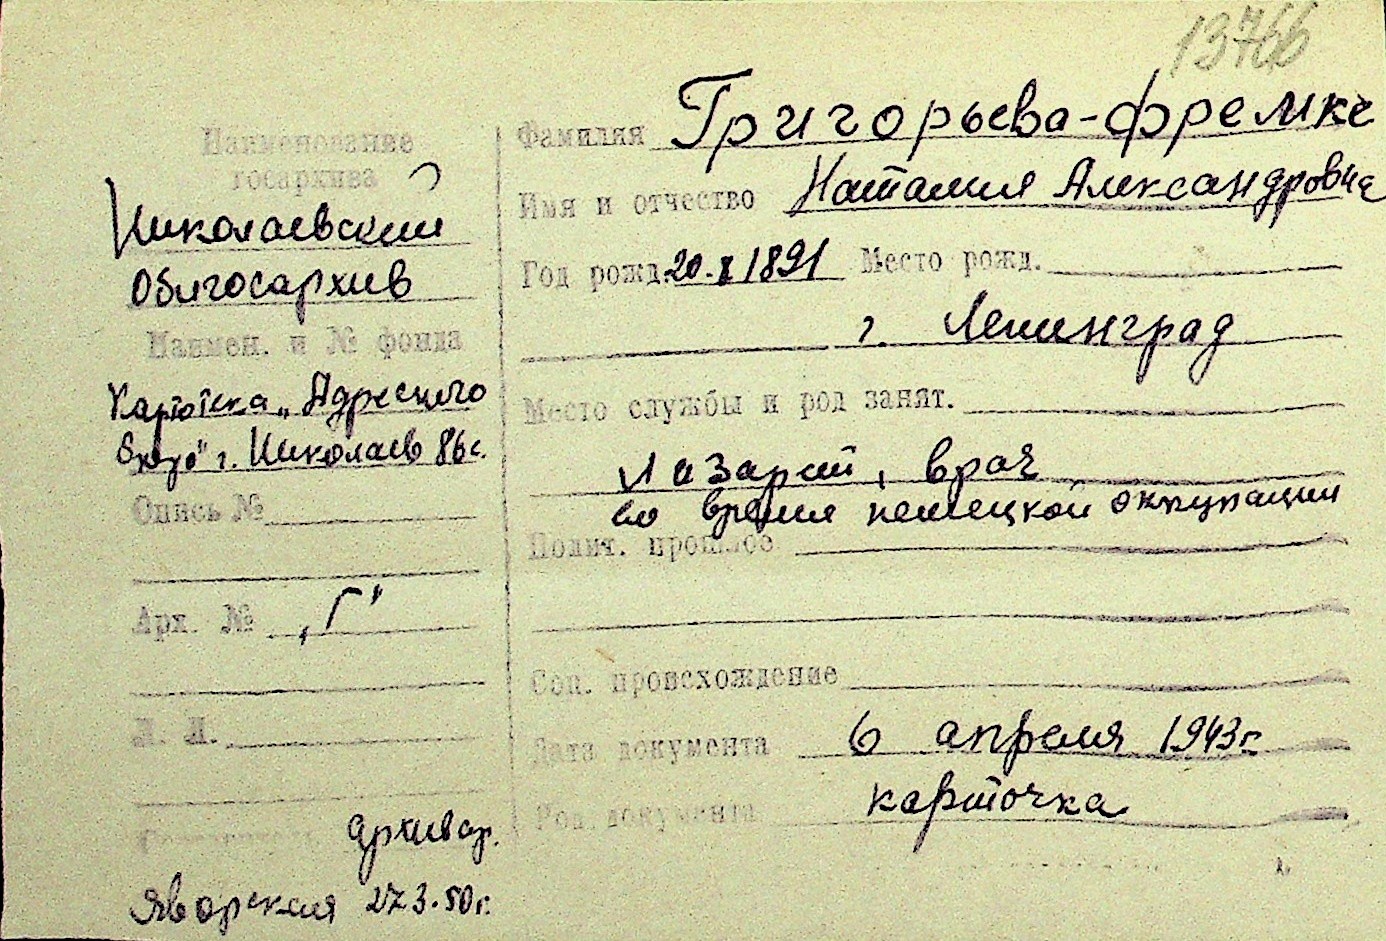 13766
Наименование
госархива
Николаевский
Облгосархив
Наимен. и № фонда
Картотека „Адресного
бюро" г. Николаев 86с.
Опись №
Арх. № „Г"
Л. Л.
архивар.
Яворская 27.3.50г.
Фамилия Григорьева-Фремке
Имя и отчество Наталия Александровна
Год рожд. 20.X 1891 Место рожд.
г. Ленинград
Место службы и род занят.
Лазарет, врач
во время немецкой оккупации
Полит. прошлое
Соц. происхождение
Дата документа 6 апреля 1943г.
Род документа карточка